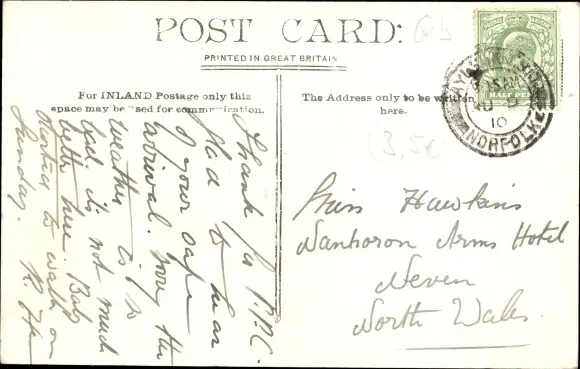 POST CARD:
PRINTED IN GREAT BRITAIN
For INLAND Postage only this
space may be used for communication.
The Address only to be written
here.
HALF PENNY
AYLSHAM
NORFOLK
10
3,5€
Thank for P.P.C.
glad to hear
of your safe
arrival. Sorry the
weather is so
bad. its not much
better here. Baby
started to walk on
Sunday. R.
Miss Hawkins
Nanhoron Arms Hotel
Neven
North Wales.